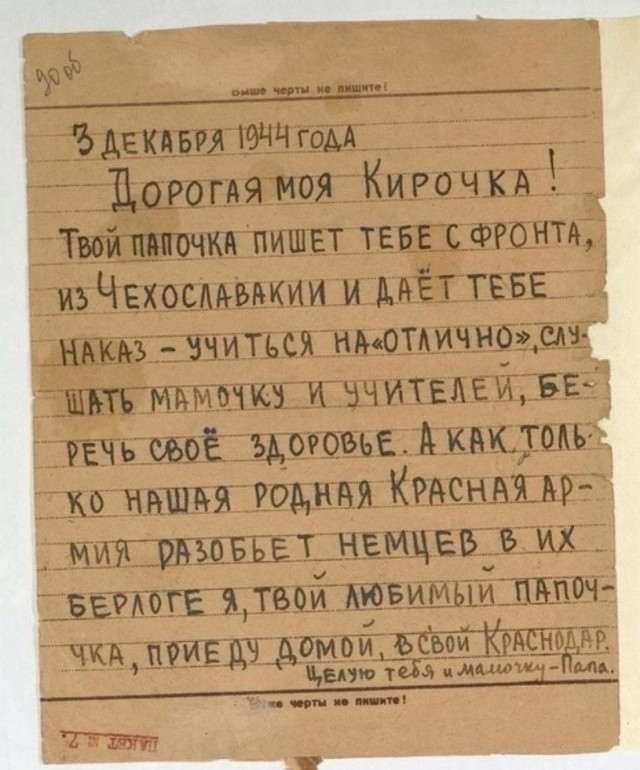 Выше черты не пишите!
3 ДЕКАБРЯ 1944 ГОДА
ДОРОГАЯ МОЯ КИРОЧКА!
ТВОЙ ПАПОЧКА ПИШЕТ ТЕБЕ С ФРОНТА,
ИЗ ЧЕХОСЛАВАКИИ И ДАЁТ ТЕБЕ
НАКАЗ – УЧИТЬСЯ НА «ОТЛИЧНО», СЛУ-
ШАТЬ МАМОЧКУ И УЧИТЕЛЕЙ, БЕ-
РЕЧЬ СВОЁ ЗДОРОВЬЕ. А КАК ТОЛЬ-
КО НАША­Я РОДНАЯ КРАСНАЯ АР-
МИЯ РАЗОБЬЕТ НЕМЦЕВ В ИХ
БЕРЛОГЕ Я, ТВОЙ ЛЮБИМЫЙ ПАПОЧ-
ЧКА, ПРИЕДУ ДОМОЙ, В СВОЙ КРАСНОДАР.
ЦЕЛУЮ тебя и мамочку – Папа.
черты не пишите!
ПАКЕТ № 7.